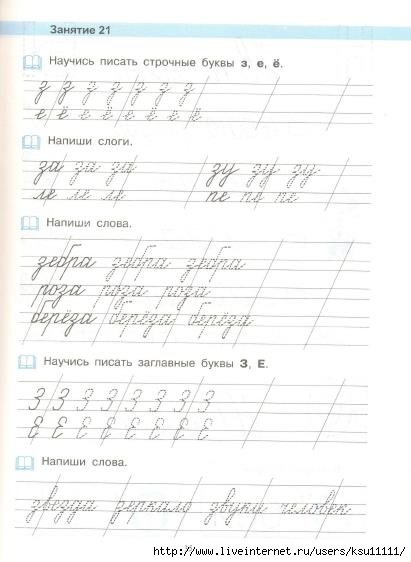 Занятие 21
Научись писать строчные буквы з, е, ё.
з з з з з з з
е ё е ё е ё е ё
Напиши слоги.
за за за зу зу зу
ле ле ле пе пе пе
Напиши слова.
зебра зебра зебра
роза роза роза
берёза берёза берёза
Научись писать заглавные буквы З, Е.
З З З З З З З З
Е Е Е Е Е Е Е Е
Напиши слова.
звезда зеркало звуки человек
http://www.liveinternet.ru/users/ksu11111/